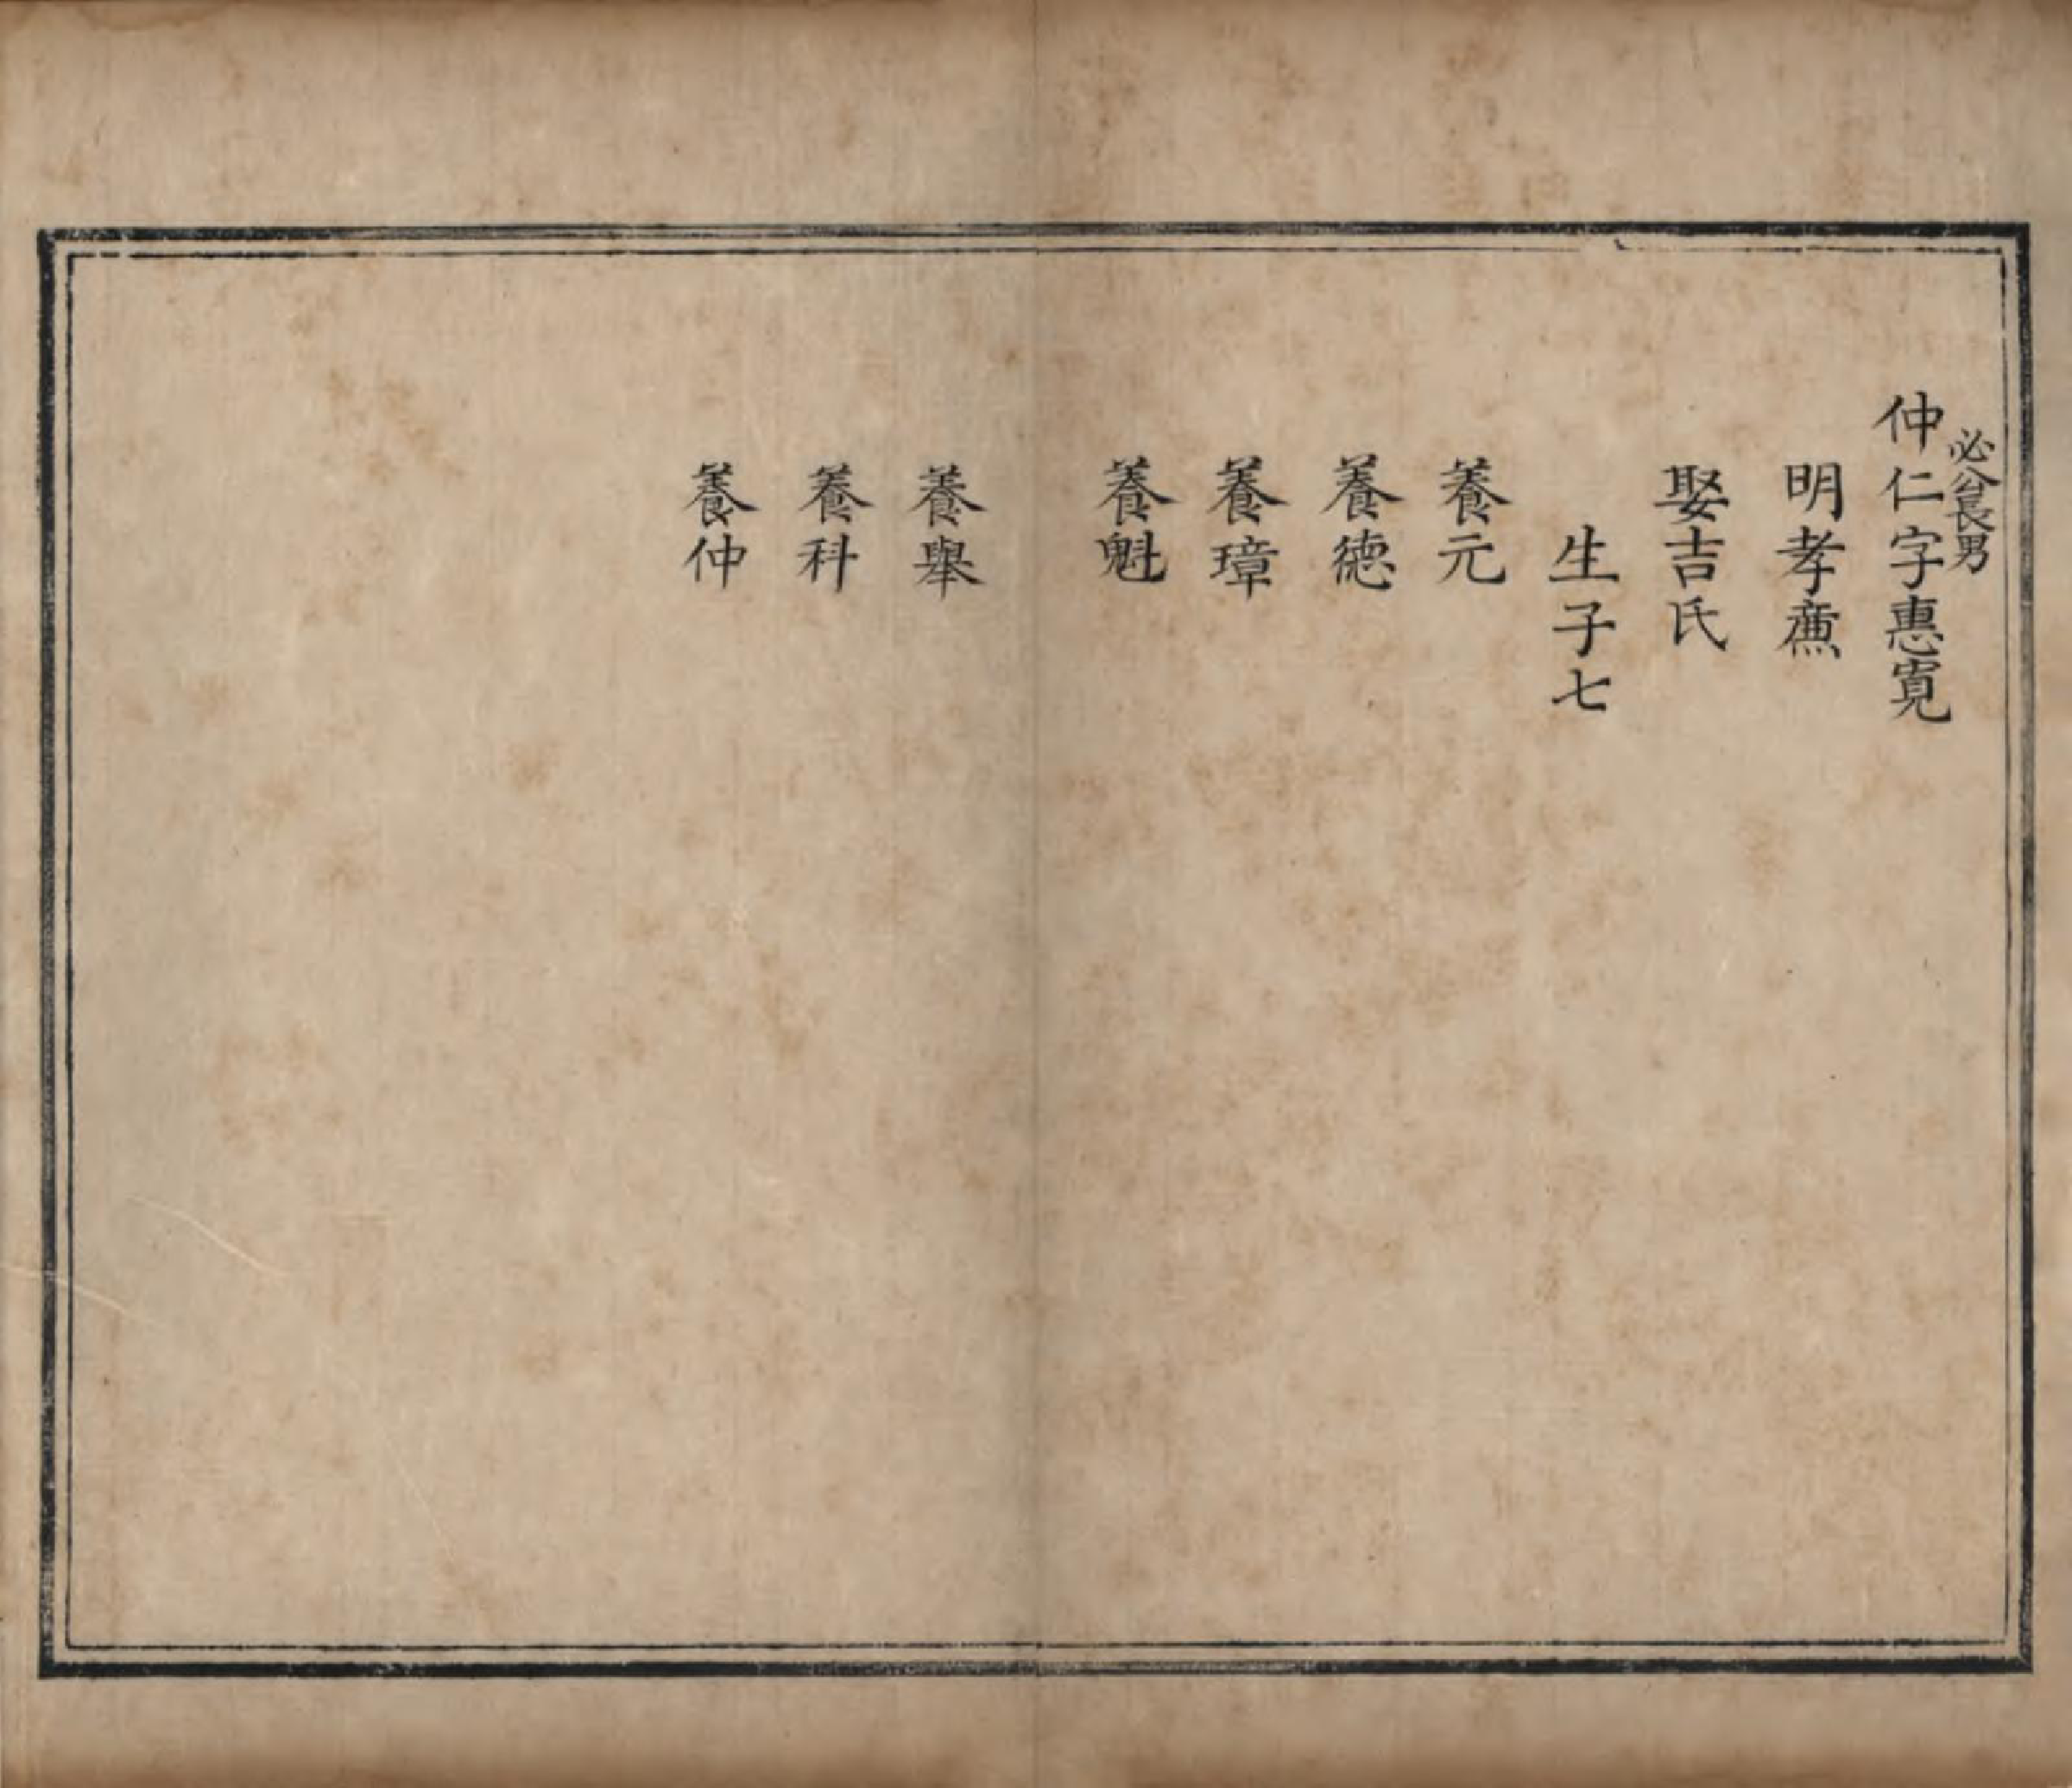 必公長男
仲仁字惠寬
明孝廉
娶吉氏
生子七
養元
養德
養璋
養魁
養舉
養科
養仲